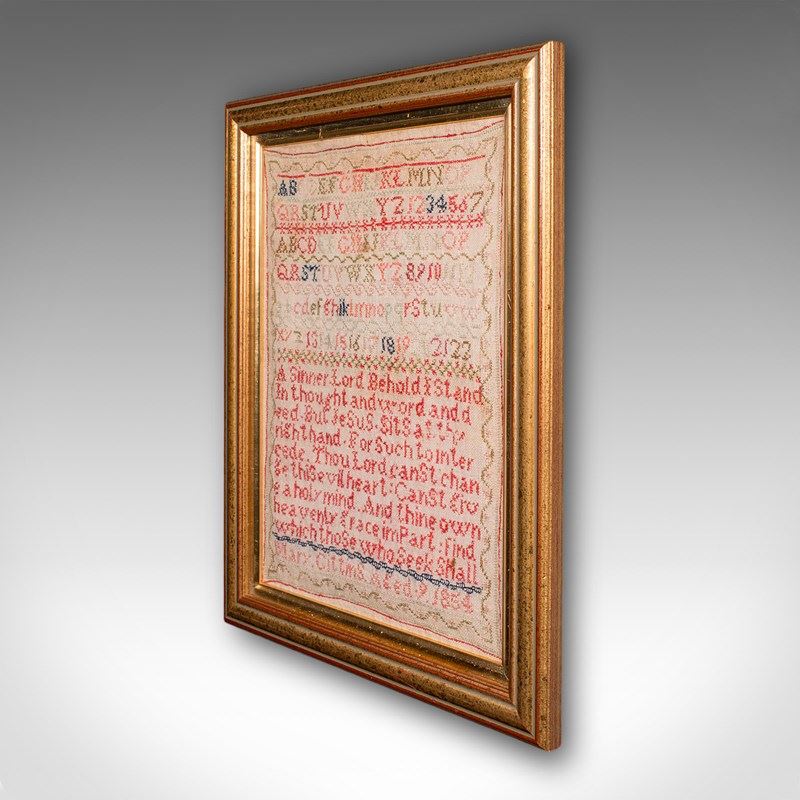 AB EFGH KLMNOP
QRSTUV YZ1234567
ABCD GHIJKLMNOP
QRSTUVWXYZ8910
cdefghiklmnopqrstuvw
XYZ131415161718192122
A Sinner Lord Behold I Stand
In thought and word and d
eed. But JeSuS. SitS at thy
right hand. For Such to inter
cede. Thou Lord canSt chan
ge thiSevil heart: CanSt Giv
e a holy mind. And thine own
heavenly Grace imPart. find
which those who Seek Shall
Mary Aged 9 1884